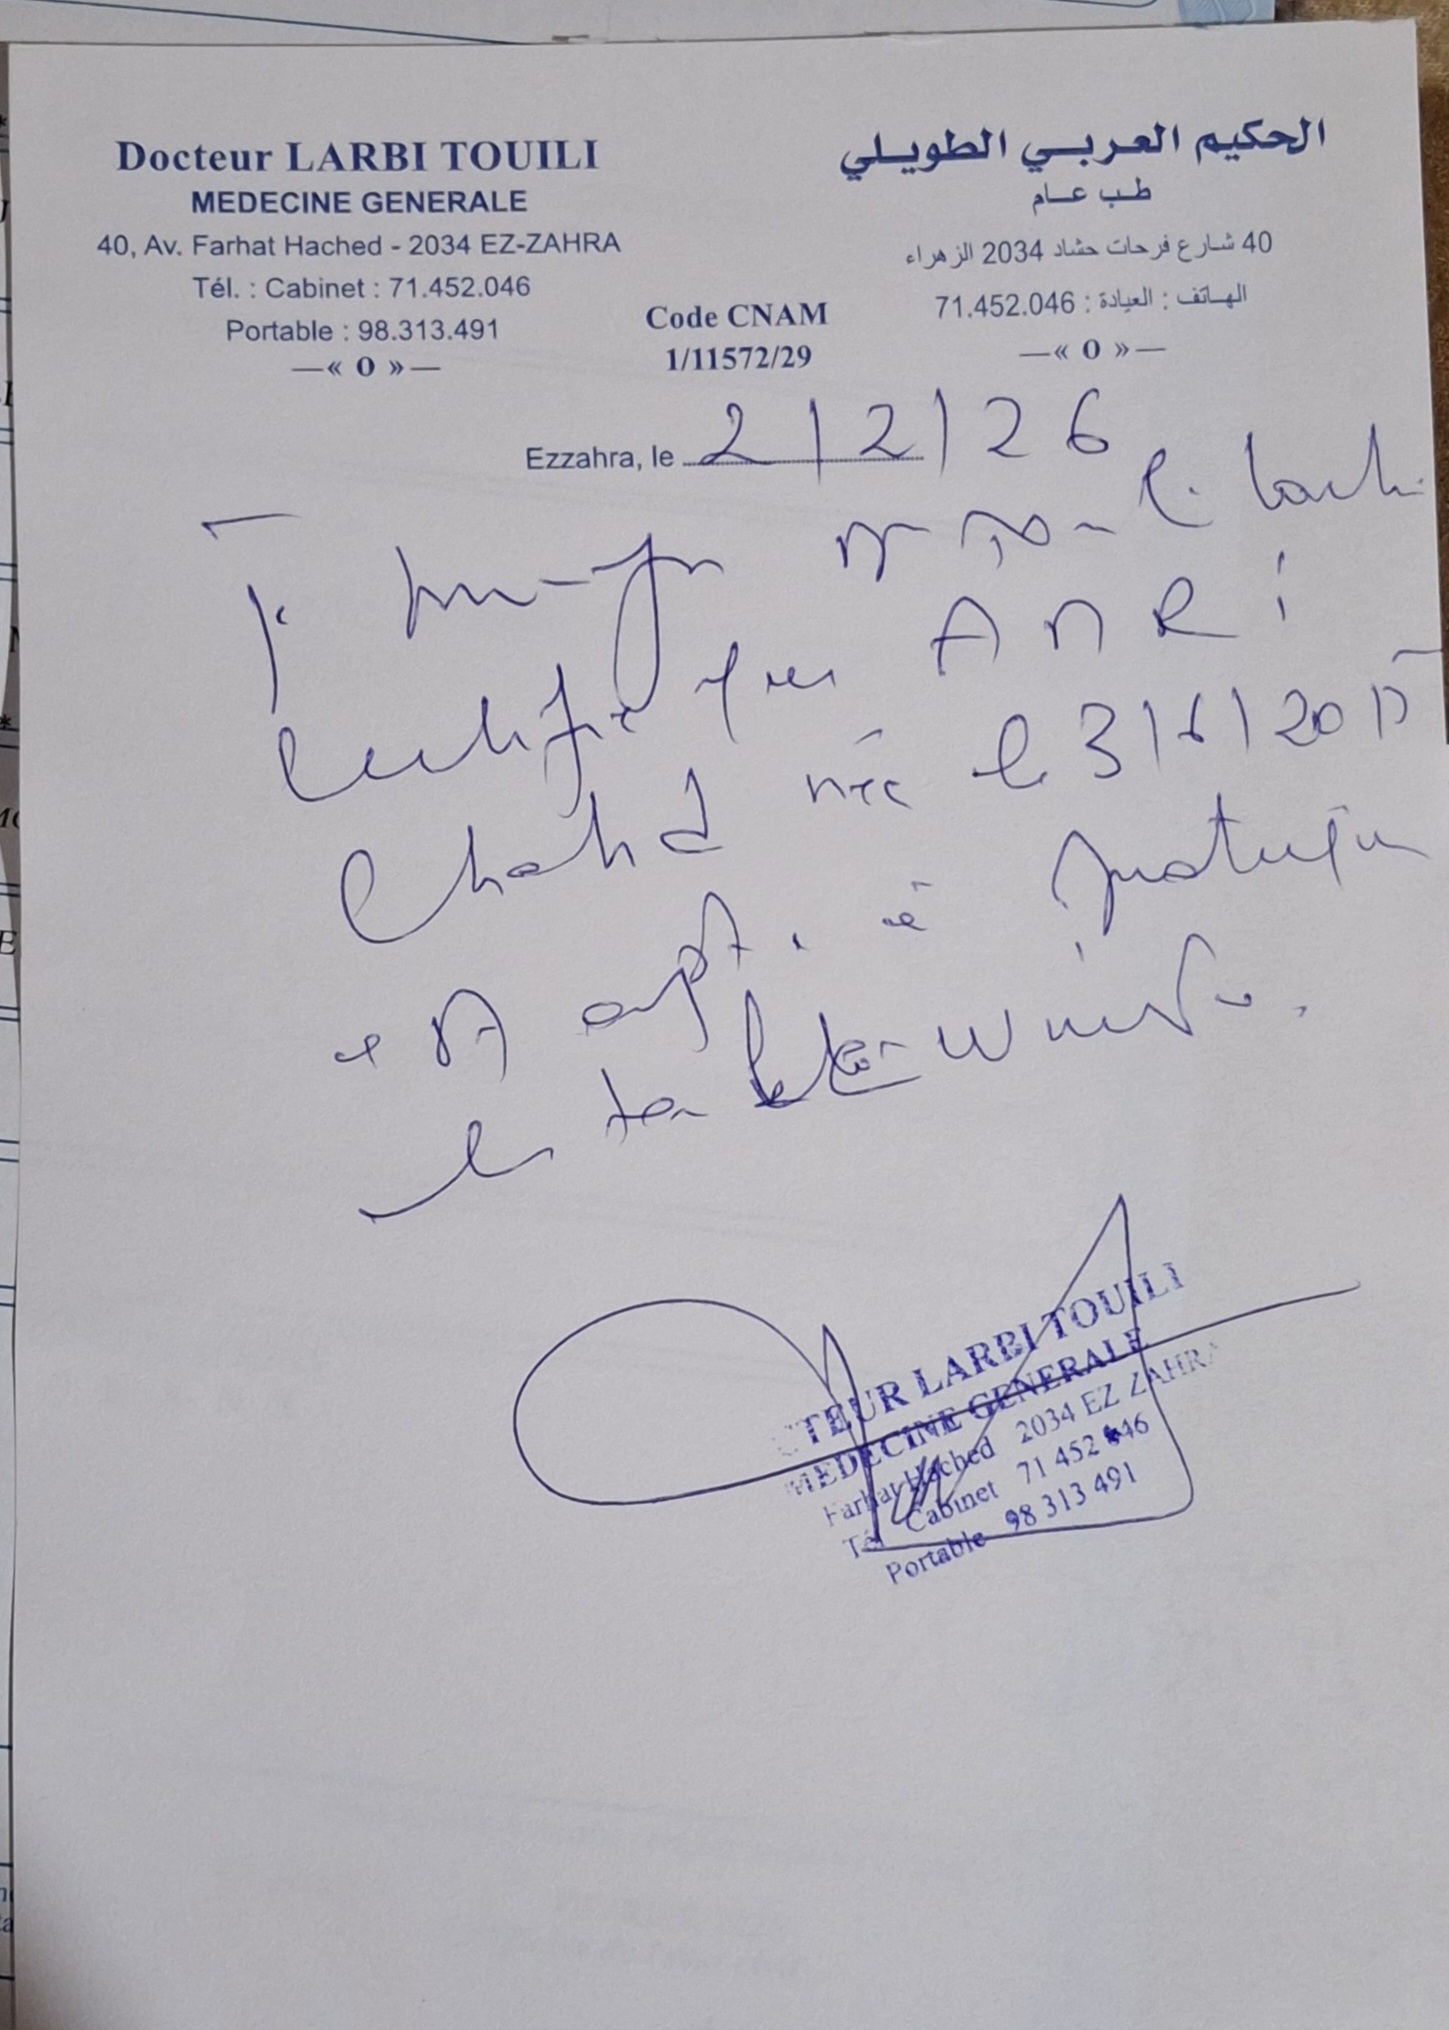 Docteur LARBI TOUILI
MEDECINE GENERALE
40, Av. Farhat Hached - 2034 EZ-ZAHRA
Tél. : Cabinet : 71.452.046
Portable : 98.313.491
—« O »—
الحكيم العربي الطويلي
طب عام
40 شارع فرحات حشاد 2034 الزهراء
الهاتف : العيادة : 71.452.046
—« O »—
Code CNAM
1/11572/29
Ezzahra, le 2/2/26
Je
certifie que AMRI
Chahd née le 3/6/2015
est apte à pratiquer
le
TEUR LARBI TOUILI
MEDECINE GENERALE
Farhat Hached 2034 EZ ZAHRA
Tél Cabinet 71 452 046
Portable 98 313 491